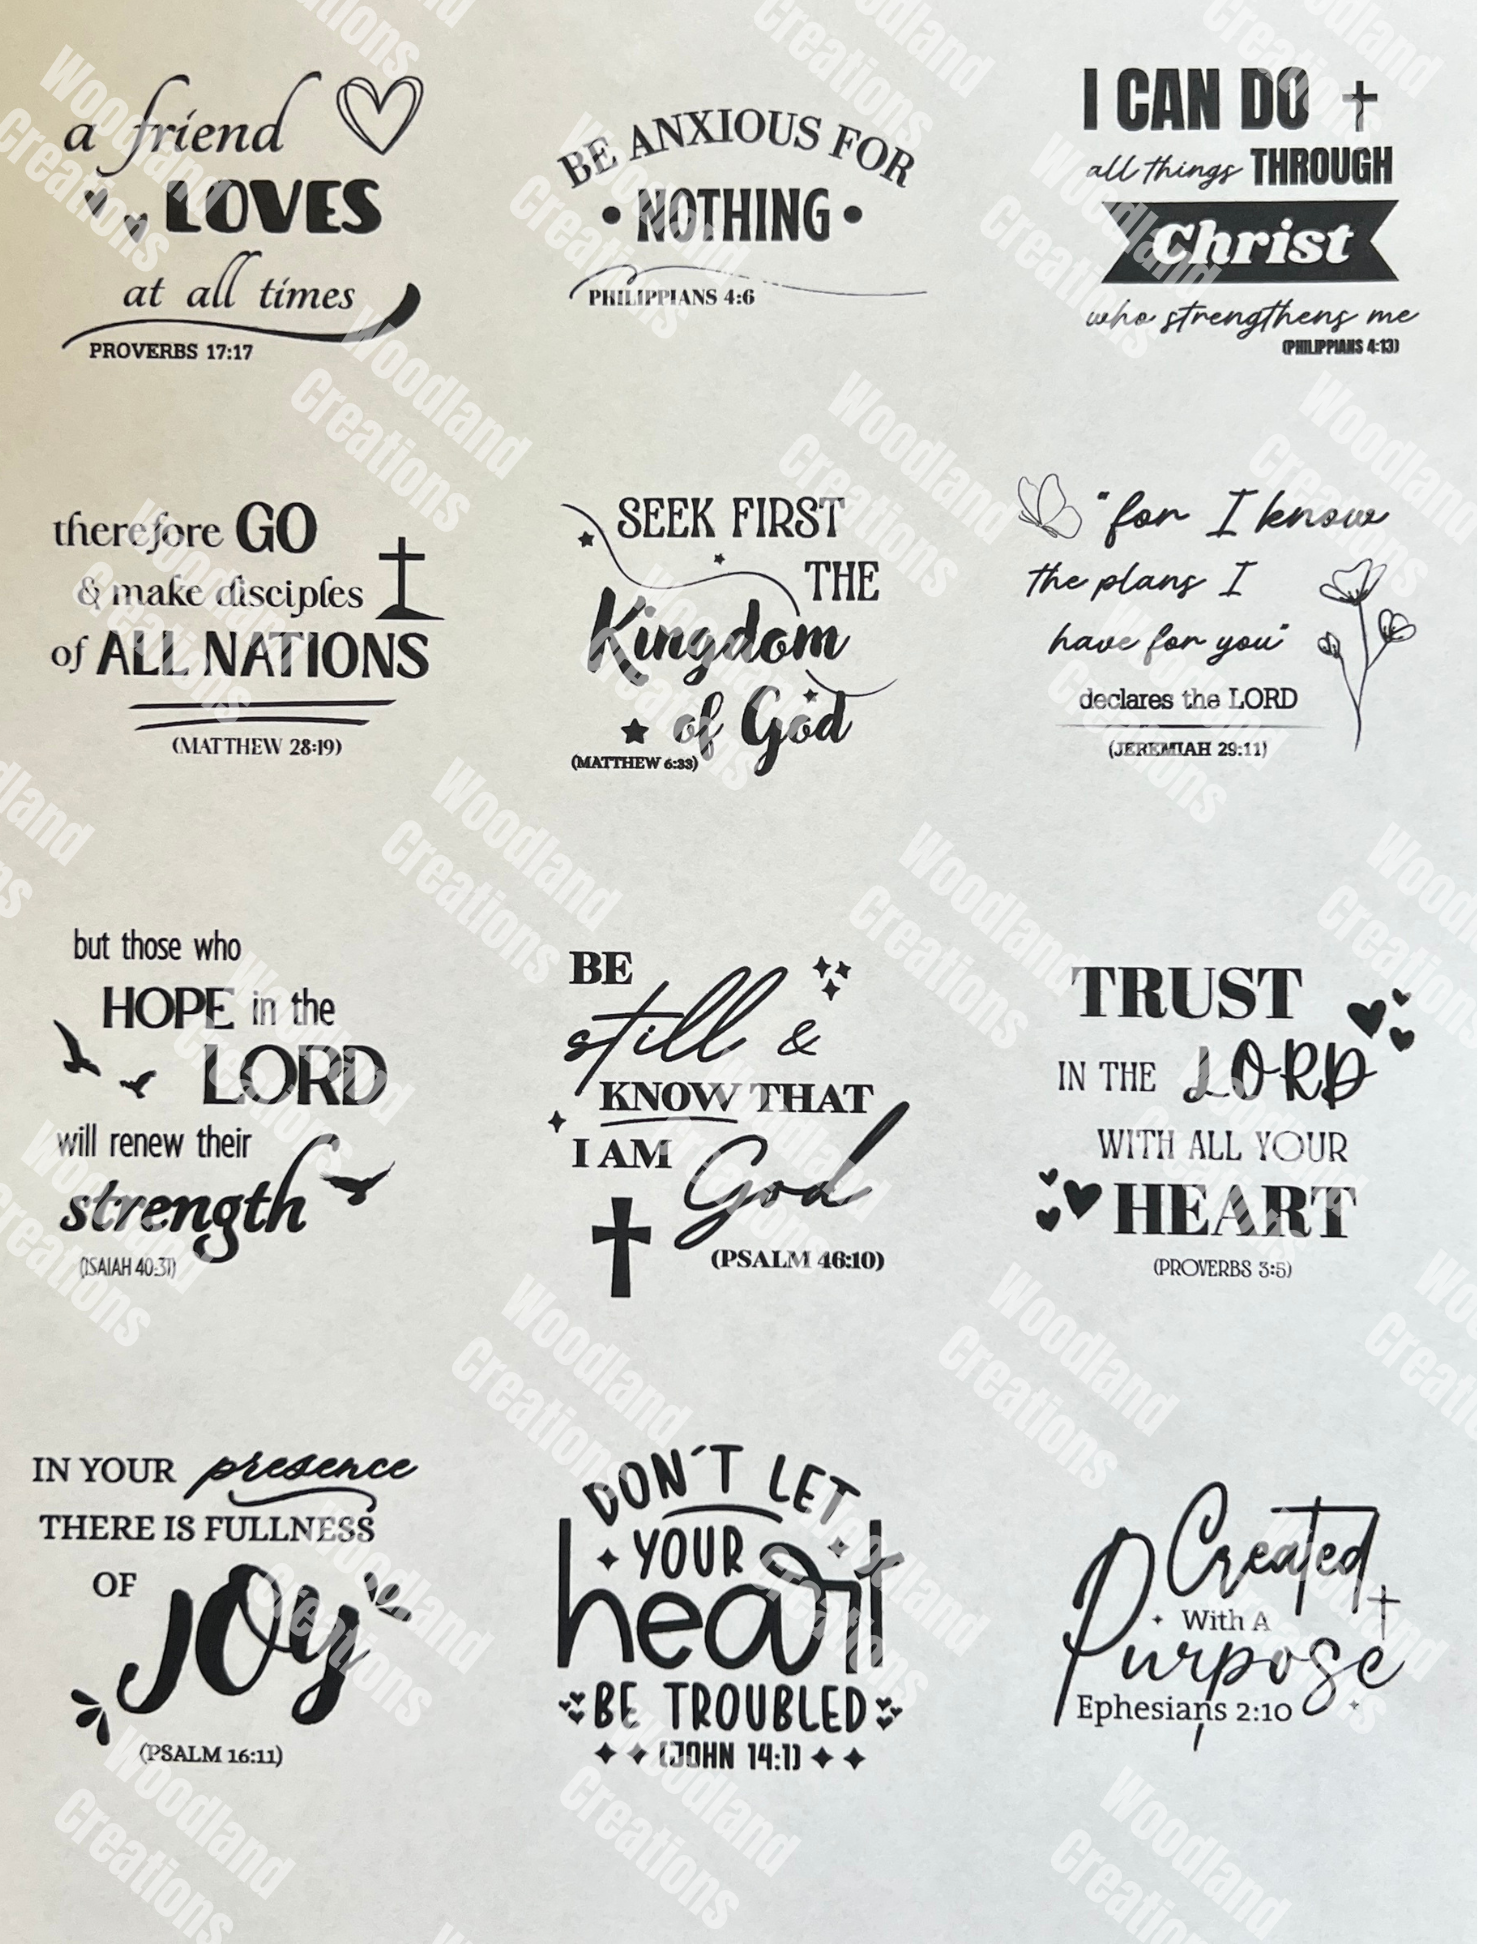 a friend
LOVES
at all times
PROVERBS 17:17
BE ANXIOUS FOR
• NOTHING •
PHILIPPIANS 4:6
I CAN DO
all things THROUGH
Christ
who strengthens me
(PHILIPPIANS 4:13)
therefore GO
& make disciples
of ALL NATIONS
(MATTHEW 28:19)
SEEK FIRST
THE
Kingdom
of God
(MATTHEW 6:33)
"for I know
the plans I
have for you"
declares the LORD
(JEREMIAH 29:11)
but those who
HOPE in the
LORD
will renew their
strength
(ISAIAH 40:31)
BE
still &
KNOW THAT
I AM God
(PSALM 46:10)
TRUST
IN THE LORD
WITH ALL YOUR
HEART
(PROVERBS 3:5)
IN YOUR presence
THERE IS FULLNESS
OF JOY
(PSALM 16:11)
DON'T LET
YOUR
heart
BE TROUBLED
(JOHN 14:1)
Created
With A
Purpose
Ephesians 2:10
Woodland
Creations